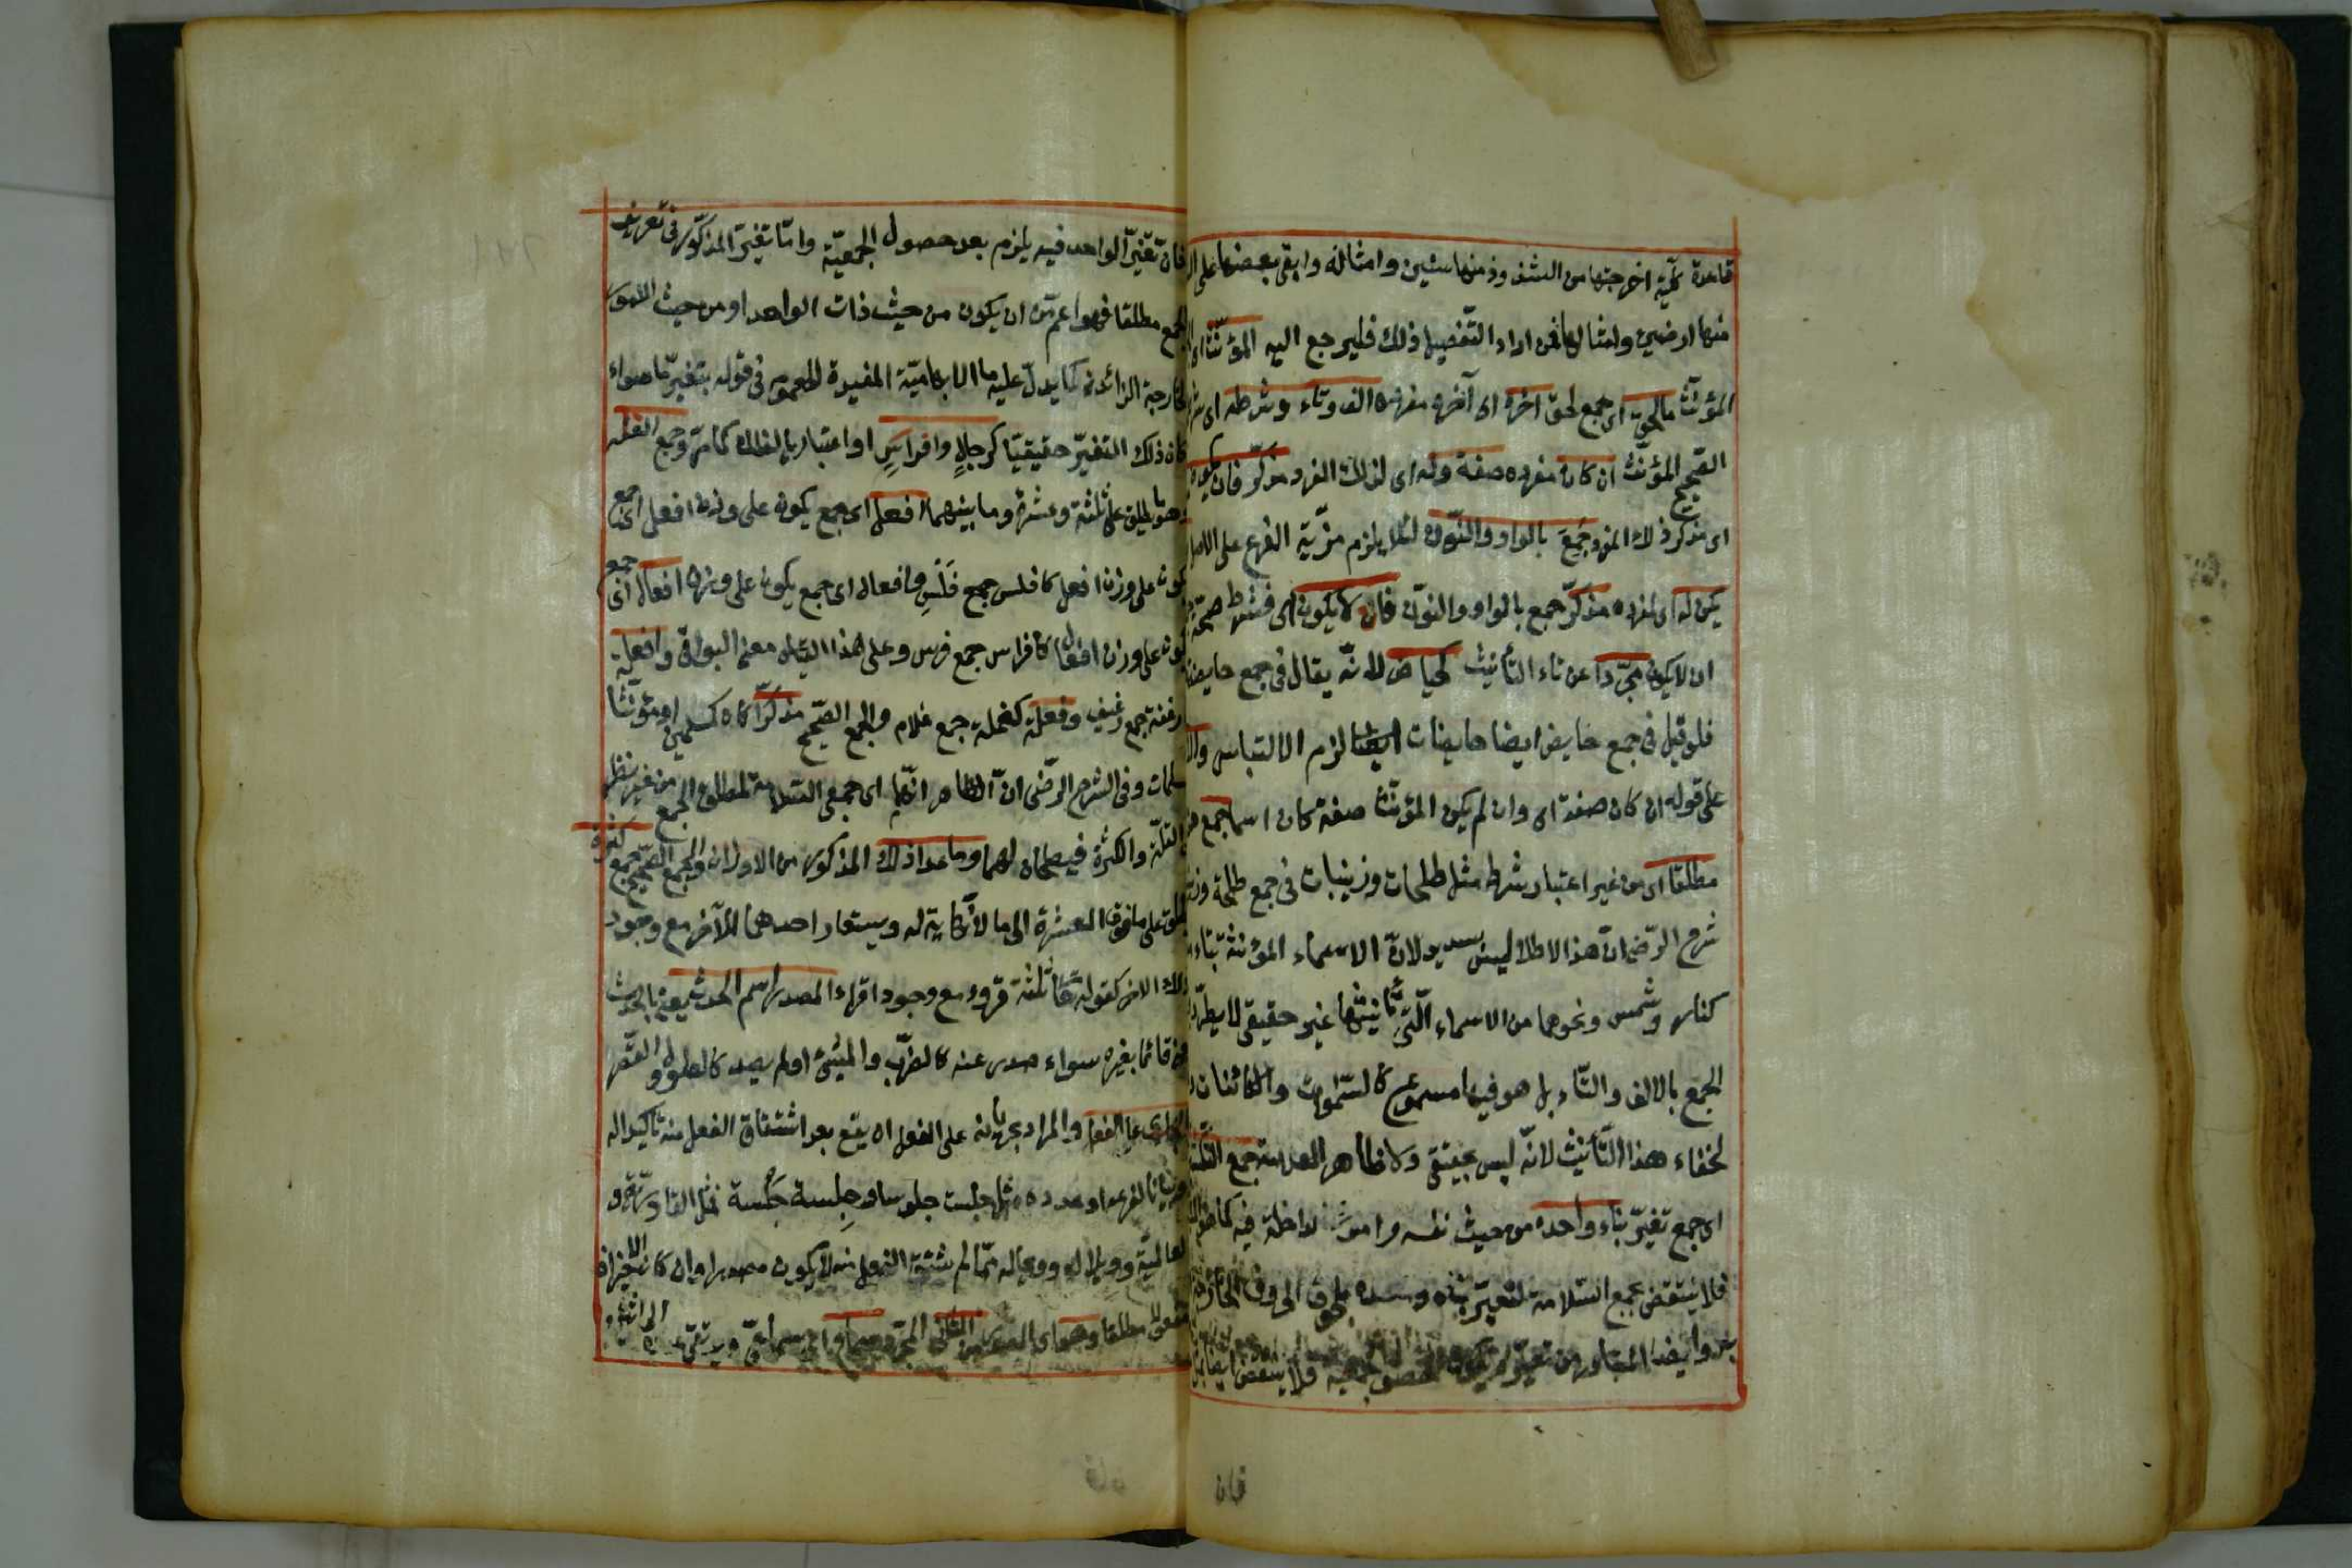 قاعدة كلّية اخرجتها من الشذوذ منها سنين وامثاله وابقى بعضها على
منها ارضين وامثالها فمن اراد التّفصيل ذلك فليرجع اليه المؤنّث اى
المؤنّث ما لحق اى جمع لحق اخره اى آخر مفرده الف وتاء وشرطه اى
الصّحيح المؤنّث ان كان مفرده صفة وله اى لذلك المفرد مذكّر فان يكون
اى مذكر ذلك المفرد جُمِعَ بالواو والنّون لئلا يلزم مزيّة الفرع على الاصل
يكن له اى لمفرده مذكّر جمع بالواو والنّون فان لا يكون اى فشرط صحّة
ان لا يكون مجرّدا عن تاء التأنيث كحايض لانّه يقال فى جمع حايضة
فلو قيل فى جمع حايض ايضا حايضات لزم الالتباس
على قوله ان كان صفة اى وان لم يكن المؤنّث صفة كان اسما جمع
مطلقا اى من غير اعتبار شرط مثل طلحات وزينبات فى جمع طلحة
شرح الرّضى انّ هذا الاطلاق ليس بسديد لانّ الاسماء المؤنثة بتاء
كنار وشمس ونحوها من الاسماء الّتى تأنيثها غير حقيقى لا يطّرد
الجمع بالالف والتّاء بل هو فيها مسموع كالسّموات والكائنات
لخفاء هذا التّأنيث لانّه ليس بحقيقى ولا ظاهر العلامة جمع التكسير
اى جمع تغيّر بناء واحده من حيث نفسه واموره الداخلة فيه كما هو
فلا ينتقض بجمع السّلامة لتغيّر بناء واحده بلحوق الحروف الخارجة
وايضا المتبادر من تغيّر ان يكون لحصول الجمعية فلا ينتقض ايضا
فان
فانّ تغيّر الواحد فيه يلزم بعد حصول الجمعيّة وامّا تغيّر المذكور فى تعريف
الجمع مطلقا فهو اعمّ من ان يكون من حيث ذات الواحد او من حيث الامور
الخارجة الزائدة كما يدلّ عليه ما الابهاميّة المفيدة للعموم فى قوله بتغيّر ما سواء
كان ذلك التغيّر حقيقيّا كرجالٍ وافراسٍ او اعتباريا كفلك كما مرّ وجمع القلّة
وهو ما يطلق على ثلثة وعشرة وما بينهما افعل اى جمع يكون على وزن افعل اى جمع
يكون على وزن افعل كافلس جمع فَلْسٍ وافعال اى جمع يكون على وزن افعال اى جمع
يكون على وزن افعال كافراس جمع فرس وعلى هذا القياس معنى البواقى وافعلة
كارغفة جمع رغيف وفعلة كغلمة جمع غلام والجمع الصّحيح مذكّرا كان كمسلمين او مؤنّثا
كمسلمات وفى الشرح الرّضى انّ الظاهر انّهما اى جمعى السّلامة لمطلق الجمع من غير نظر
الى القلّة والكثرة فيصلحان لهما وما عدا ذلك المذكور من الاوزان والجمع الصّحيح جمع كثرة
يطلق على ما فوق العشرة الى ما لا نهاية له ويستعار احدهما للآخر مع وجود
ذلك الاخر كقوله تعالى ثلثة قروء مع وجود اقراء المصدر اسم الحدث يعنى بالحدث
معنى قائما بغيره سواء صدر عنه كالضّرب والمشى او لم يصدر كالطول والقصر
الجارى على الفعل والمراد بجريانه على الفعل ان يقع بعد اشتقاق الفعل منه تأكيدا له
او بيانا لنوعه او عدده مثل جلست جلوسا وجِلسة وجَلسة فمثل القادريّة و
العالميّة وويلا له وويحا له ممّا لم يشتق الفعل منه لا يكون مصدرا وان كان الاخيران
مفعولا مطلقا وهو اى المصدر من الثّلاثى المجرّد سماع اى سماعىّ ويرتقى الى اثنين و